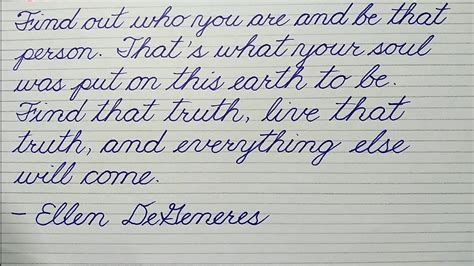 Find out who you are and be that
person. That's what your soul
was put on this earth to be.
Find that truth, live that
truth, and everything else
will come.
- Ellen DeGeneres